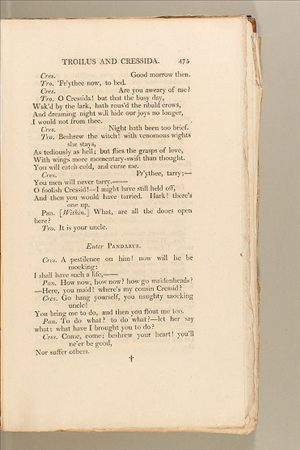 TROILUS AND CRESSIDA. 475
Cres. Good morrow then.
Tro. 'Pr'ythee now, to bed.
Cres. Are you aweary of me?
Tro. O Cressida! but that the busy day,
Wak'd by the lark, hath rous'd the ribald crows,
And dreaming night will hide our joys no longer,
I would not from thee.
Cres. Night hath been too brief.
Tro. Beshrew the witch! with venomous wights
she stays,
As tediously as hell; but flies the grasps of love,
With wings more momentary-swift than thought.
You will catch cold, and curse me.
Cres. Pr'ythee, tarry;—
You men will never tarry.——
O foolish Cressid!—I might have still held off,
And then you would have tarried. Hark! there's
one up.
Pan. [Within.] What, are all the doors open
here?
Tro. It is your uncle.
Enter PANDARUS.
Cres. A pestilence on him! now will he be
mocking:
I shall have such a life,——
Pan. How now, how now? how go maidenheads?
—Here, you maid! where's my cousin Cressid?
Cres. Go hang yourself, you naughty mocking
uncle!
You bring me to do, and then you flout me too.
Pan. To do what? to do what?—let her say
what: what have I brought you to do?
Cres. Come, come; beshrew your heart! you'll
ne'er be good,
Nor suffer others.
†